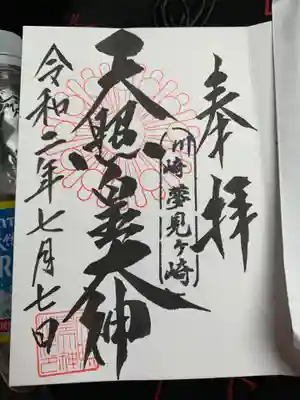 奉拝
川崎夢見ヶ崎
天照皇大神
令和二年七月七日